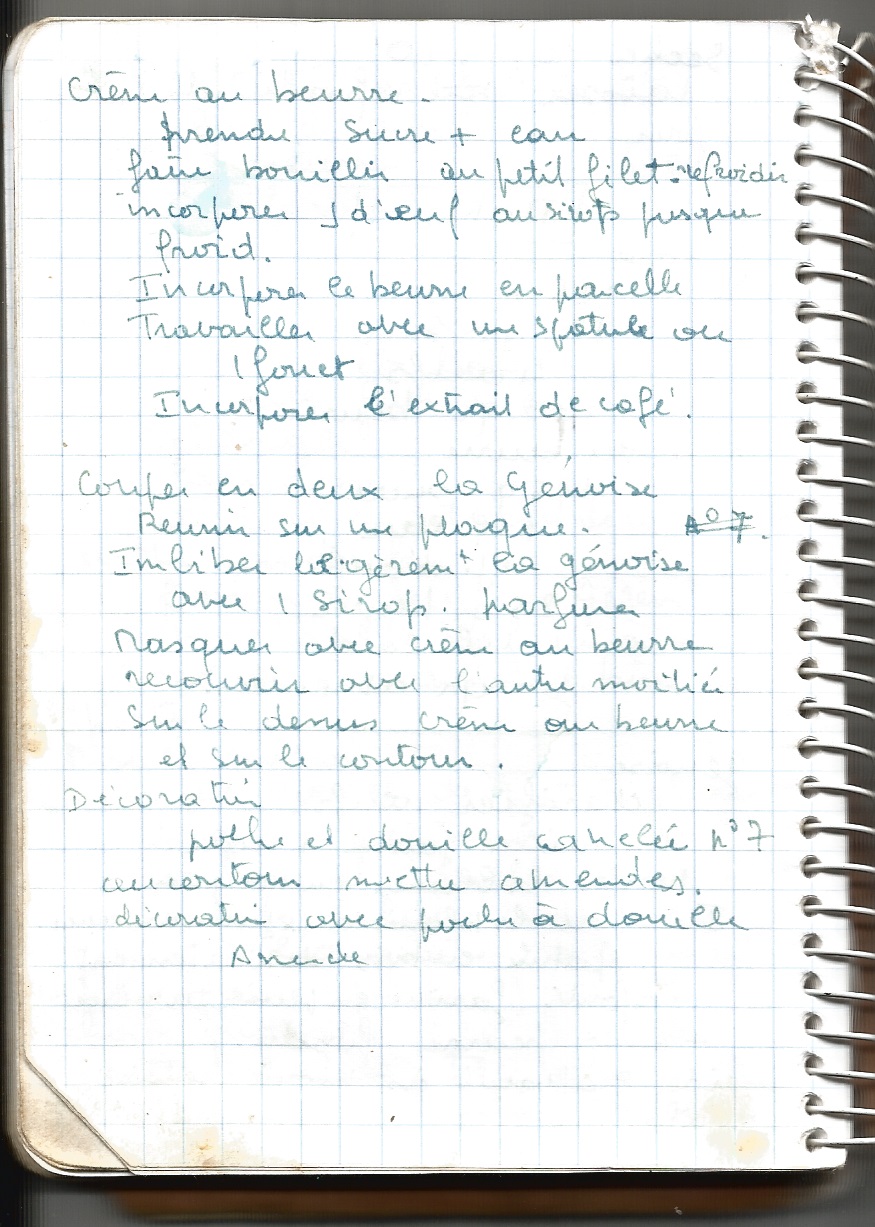 Crême au beurre.
prendre Sucre + eau
faire bouillir au petit filet. refroidir
incorporer J d'œuf au sirop jusque
froid.
Incorporer le beurre en parcelle
Travailler avec une spatule ou
1 fouet
Incorporer l'extrait de café.
Couper en deux la Génoise
Réunir sur une plaque. N° 7.
Imbiber légèremt la génoise
avec 1 Sirop. parfumer
Masquer avec crême au beurre
recouvrir avec l'autre moitiée
Sur le dessus crême au beurre
et sur le contour.
Décoration
poche et douille canelée n° 7
au contour mettre amendes.
décoration avec poche à douille
Amende